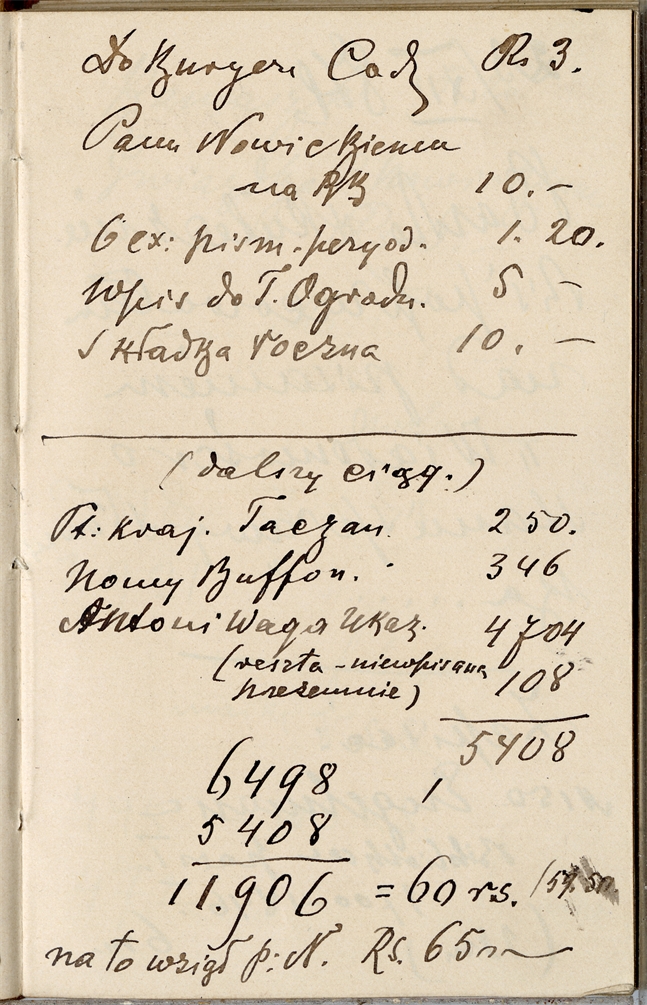 Do Kuryera Codz Rs 3.
Panu Nowickiemu
na 10. –
6 ex: pism. peryod. 1. 20.
Wpis do T. Ogrodn. 5 –
Składka roczna 10. –
(dalszy ciąg.)
Pt: kraj. Taczan. 250.
Nowy Buffon. 346
Antoni Waga Ukaz. 4704
(reszta – niewpisana 108
przezemnie)
5408
6498
5408
11.906 = 60 rs.
na to wziął p: N. Rs. 65